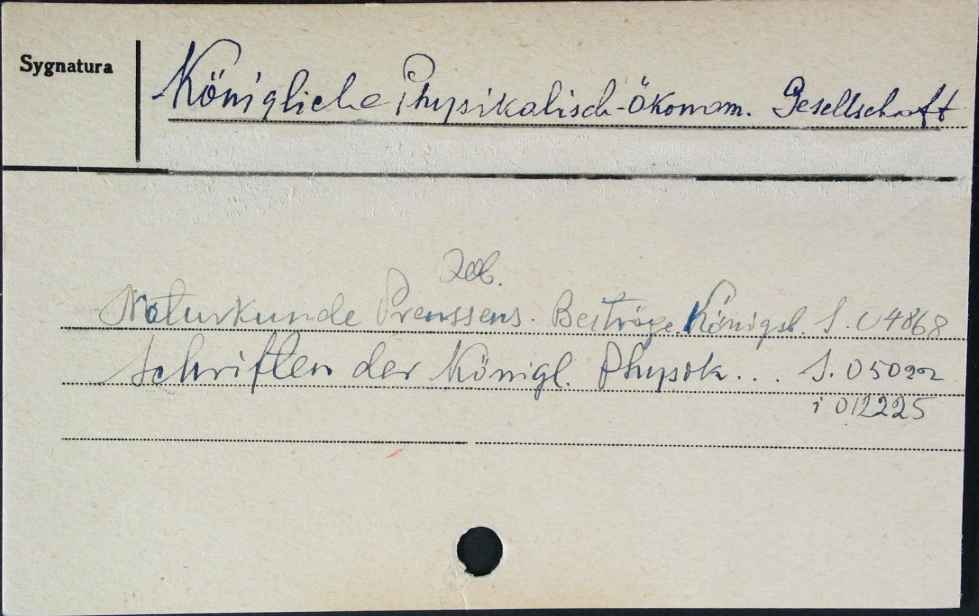 Sygnatura
Königliche Physikalisch-Ökonom. Gesellschaft
Zob.
Naturkunde Preussens. Beiträge. Königsb. S. 04868
Schriften der Königl. Physik... S. 05022
i 012225